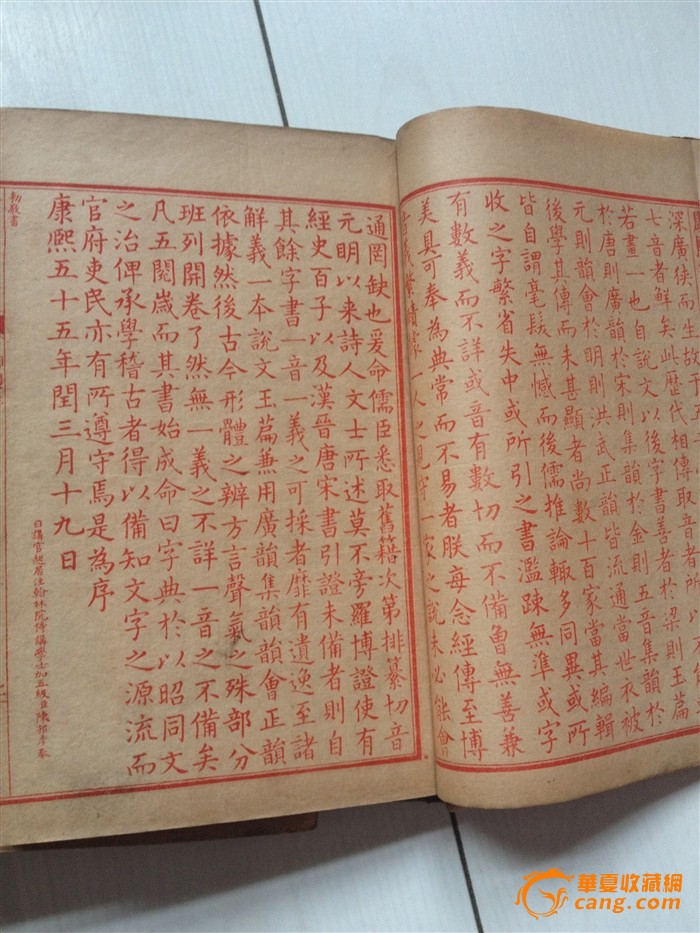 深廣狹而生故
七音者鮮矣此歷代相傳取音者
若畫一也自說文以後字書善者於梁則玉
於唐則廣韻於宋則集韻於金則五音集韻於
元則韻會於明則洪武正韻皆流通當世衣被
後學其傳而未甚顯者尚數十百家當其編輯
皆自謂毫髮無憾而後儒推論輒多同異或所
收之字繁省失中或所引之書濫疎無準或字
有數義而不詳或音有數切而不備曾無善兼
美具可奉為典常而不易者朕每念經傳至博
音義繁賾據一人之見守一家之說未必能會
通罔缺也爰命儒臣悉取舊籍次第排纂切音
解義一本說文玉篇兼用廣韻集韻韻會正韻
其餘字書一音一義之可採者靡有遺逸至諸
經史百子以及漢晉唐宋書引證未備者則自
元明以來詩人文士所述莫不旁羅博證使有
依據然後古今形體之辨方言聲氣之殊部分
班列開卷了然無一義之不詳一音之不備矣
凡五閱歲而其書始成命曰字典於以昭同文
之治俾承學稽古者得以備知文字之源流而
官府吏民亦有所遵守焉是為序
康熙五十五年閏三月十九日
日講官起居注翰林院侍講學士加五級臣陳邦彥奉
勑敬書
華夏收藏網
cang.com